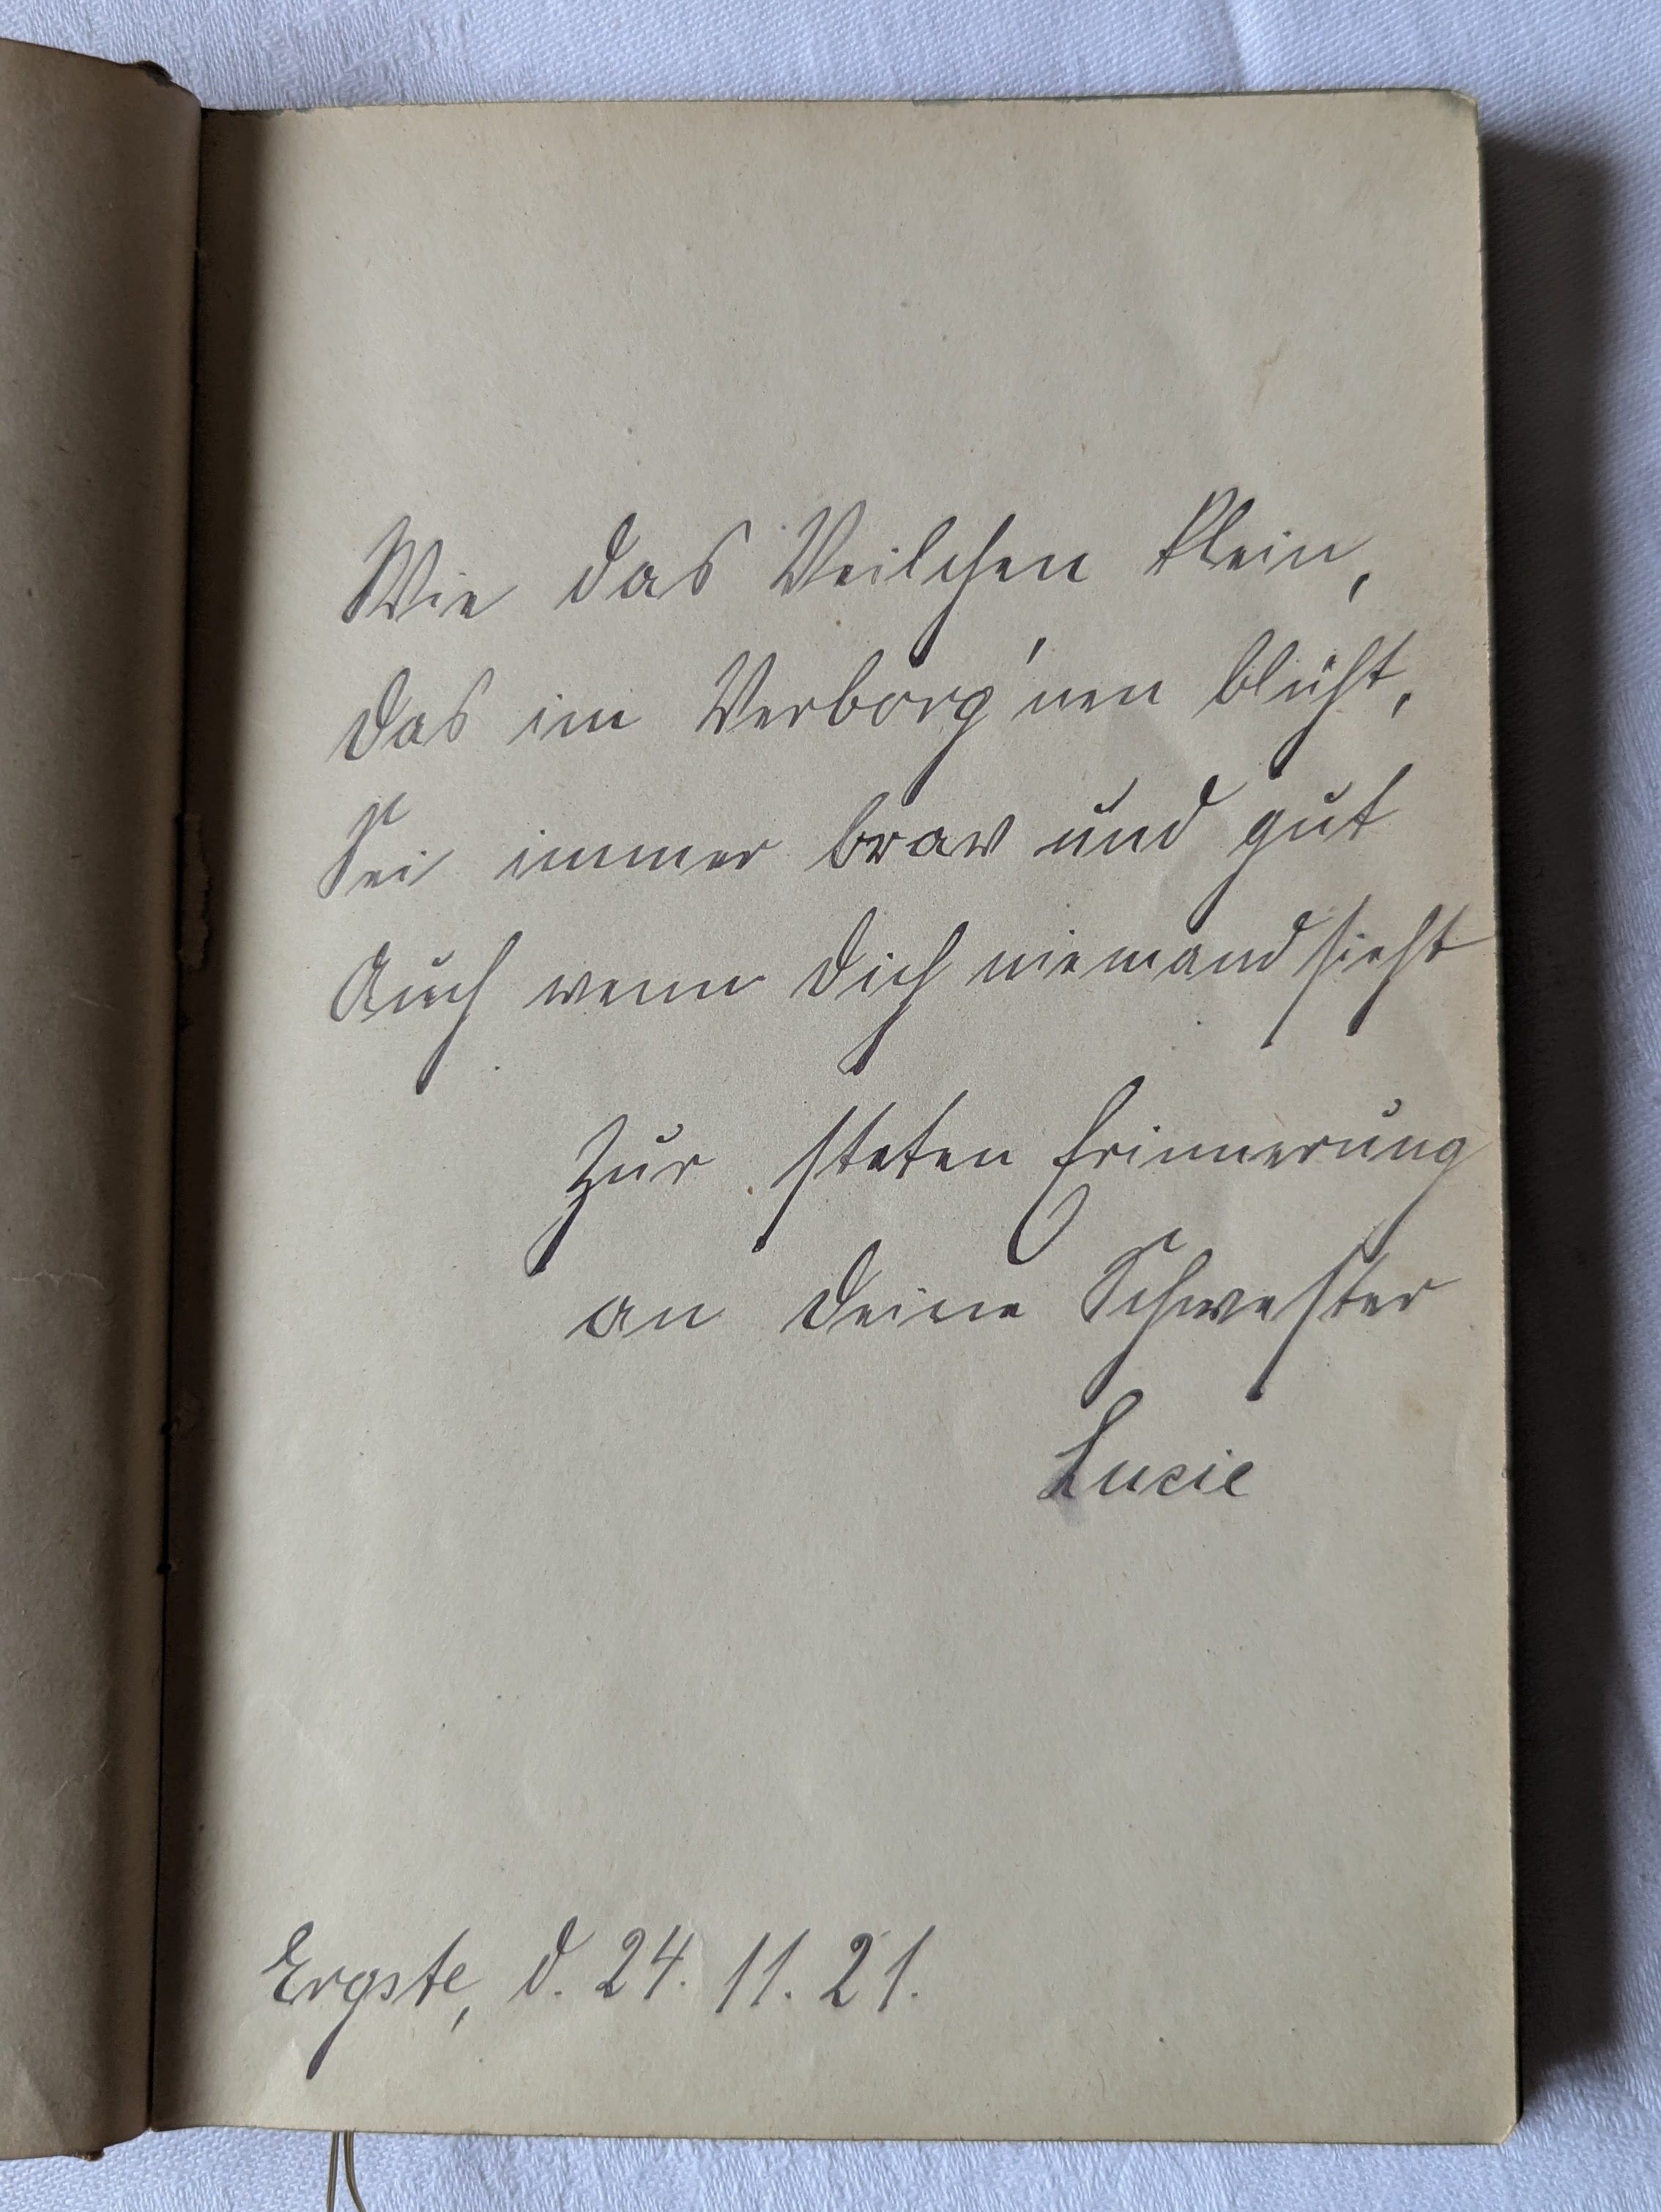 Wie das Veilchen klein,
das im Verborg'nen blüht,
Sei immer brav und gut
Auch wenn dich niemand sieht
Zur steten Erinnerung
an deine Schwester
Lucie
Ergste, d. 24. 11. 21.